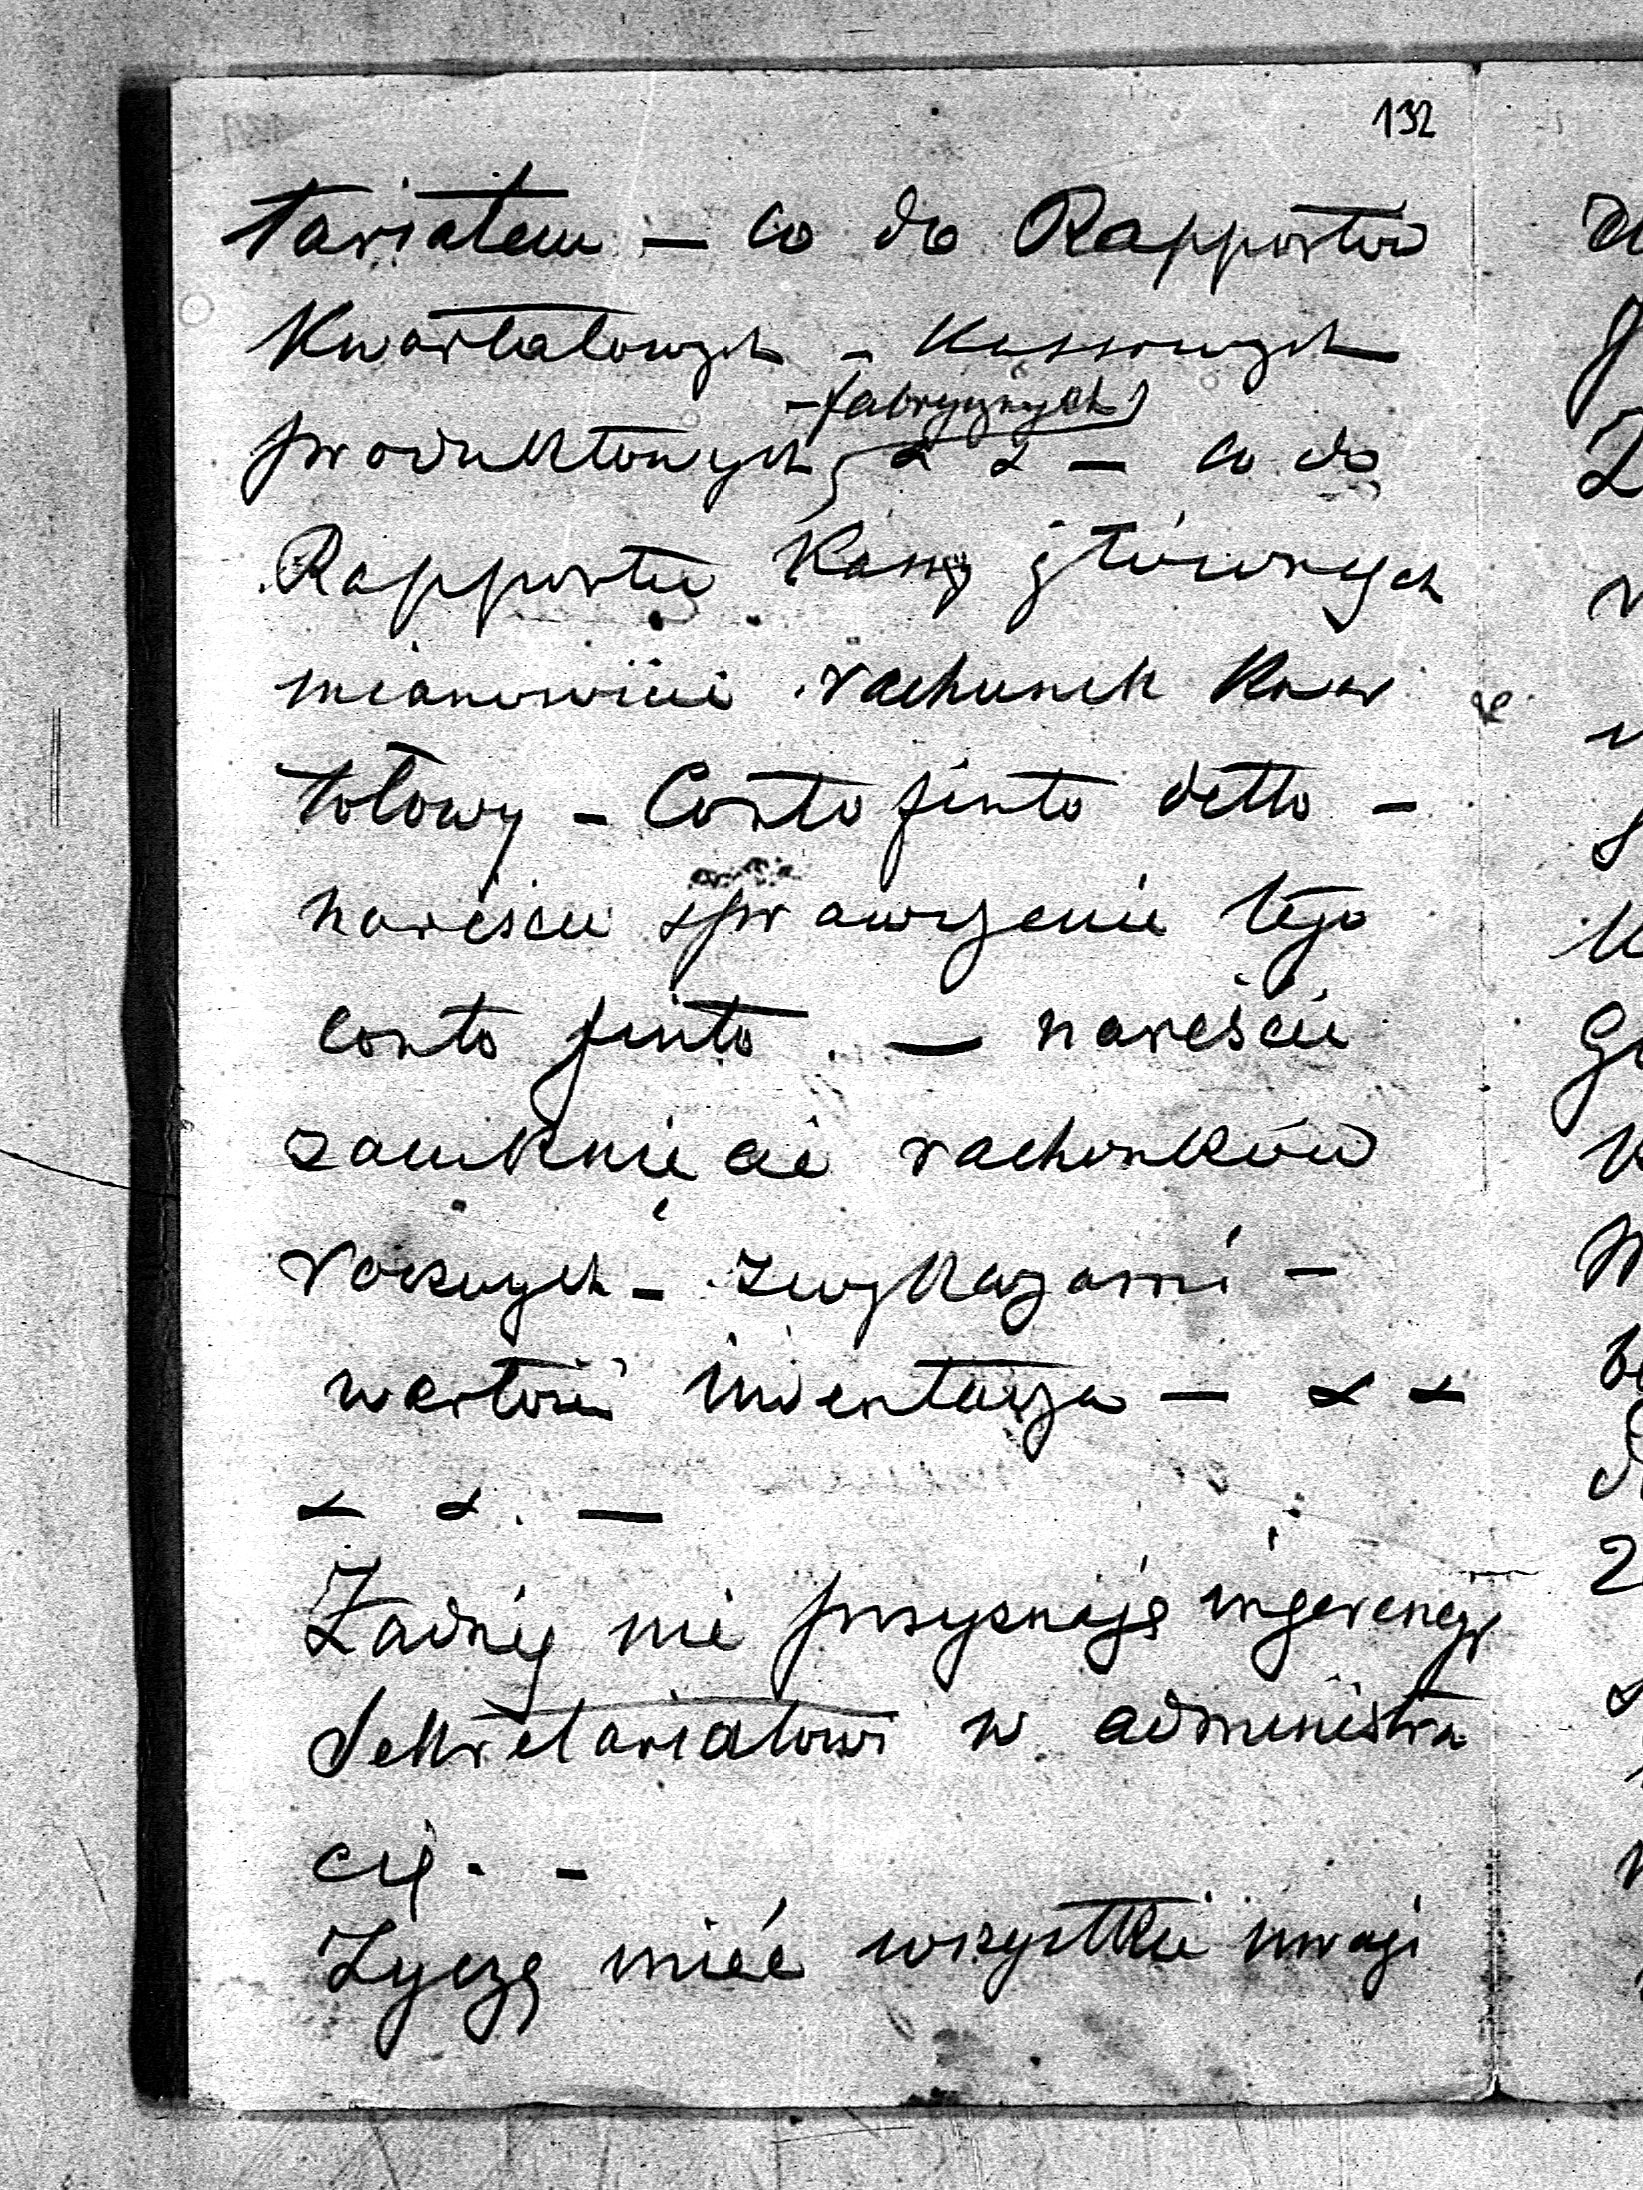 132
tariatem — co do Rapportów
Kwartalowych – Kassowych
– fabrycznych
produktowych, & & — co do
Rapportu Kassy głównych
mianowicie rachunek Kwar
tolowy – Conto finto detto –
nareście sprawzenie tego
conto finto. — nareście
zamknięcie rachunków
rocznych – z wykazami –
wartości inwentarza — & &
& & . —
Żadnéj nie przyznaję ingerencyi
Sekretariatowi w administra
cij. –
Życzę mieć wszystkie uwagi